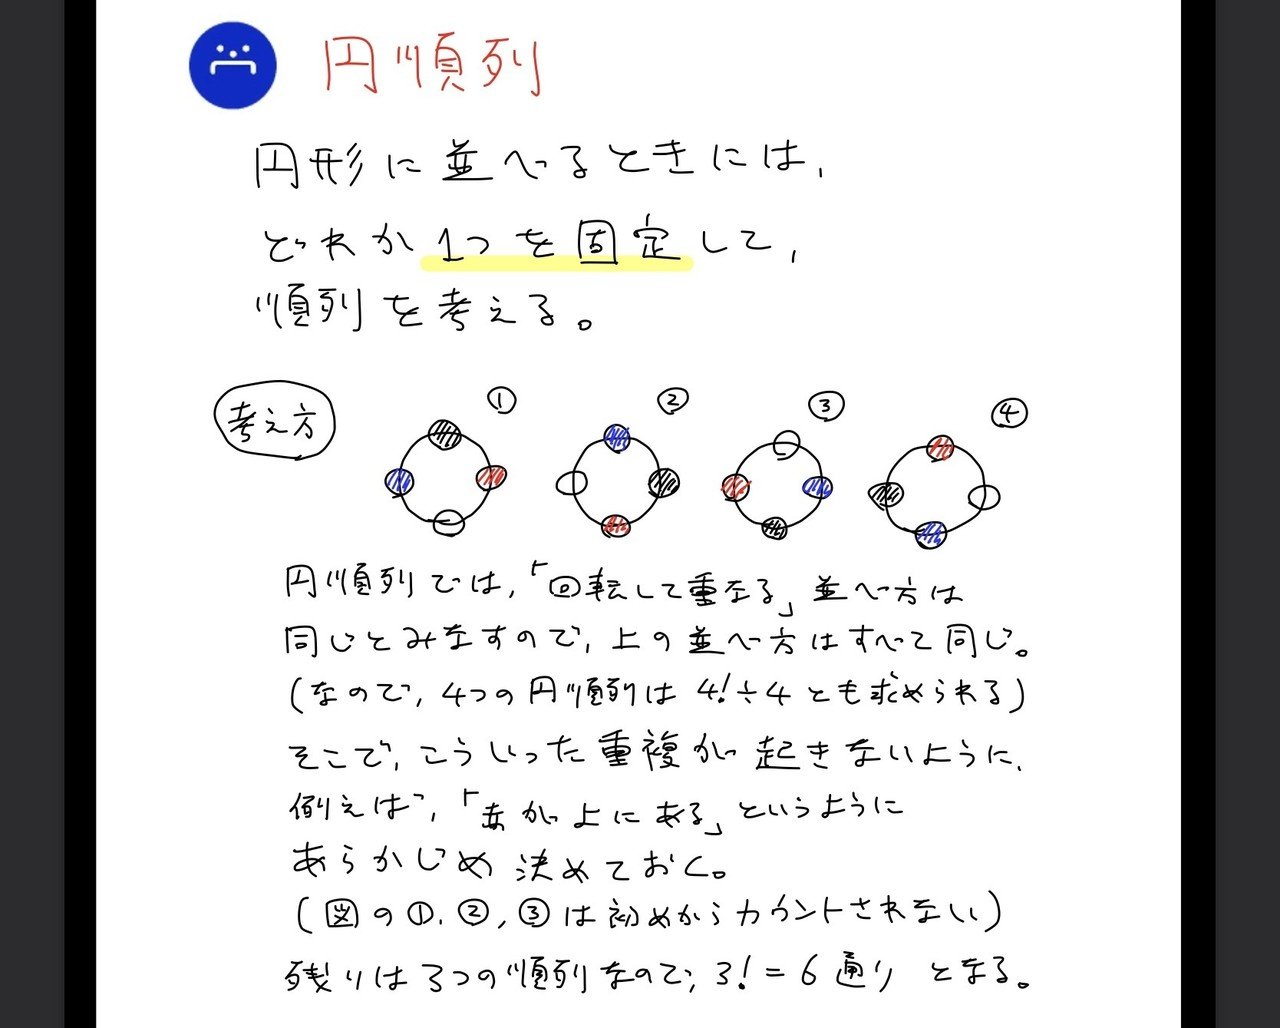 円順列
円形に並べるときには,
どれか1つを固定して,
順列を考える。
考え方
① ② ③ ④
円順列では,「回転して重なる」並べ方は
同じとみなすので,上の並べ方はすべて同じ。
(なので,4つの円順列は 4!÷4 とも求められる)
そこで,こういった重複が起きないように,
例えば,「赤が上にある」というように
あらかじめ決めておく。
(図の①,②,③は初めからカウントされない)
残りは3つの順列なので,3!=6通り となる。